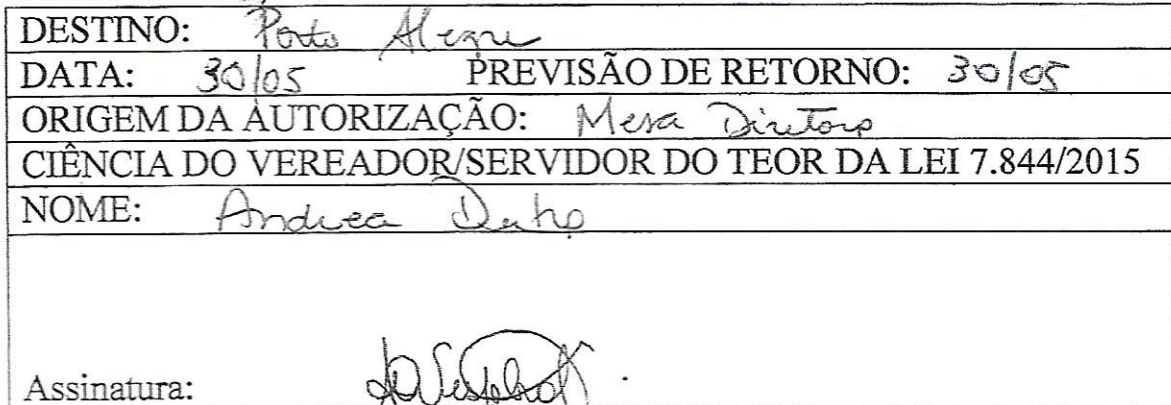 DESTINO: Porto Alegre
DATA: 30/05 PREVISÃO DE RETORNO: 30/05
ORIGEM DA AUTORIZAÇÃO: Mesa Diretora
CIÊNCIA DO VEREADOR/SERVIDOR DO TEOR DA LEI 7.844/2015
NOME: Andrea
Assinatura: